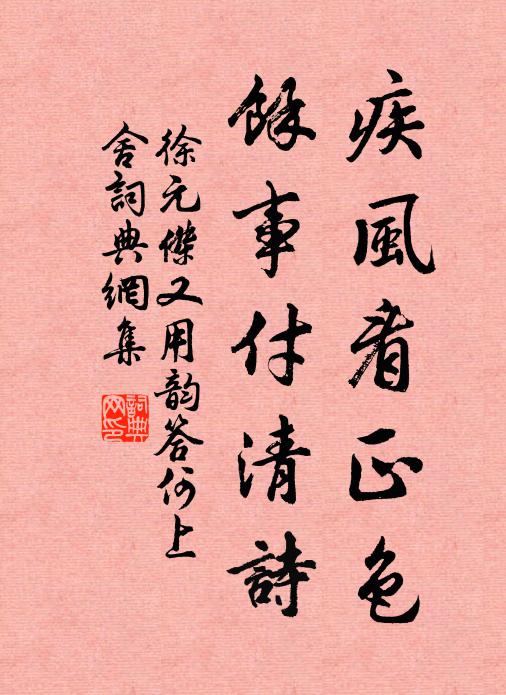 疾風看正色
餘事付清詩
徐元傑又用韵答何上
舍詞典網集
詞典
网印